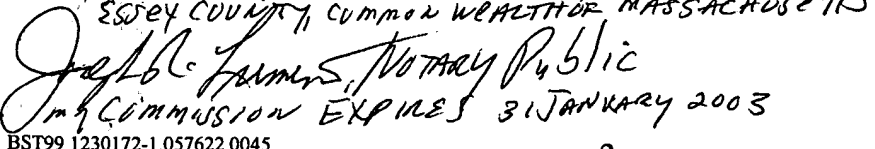 ESSEX COUNTY, COMMONWEALTH OF MASSACHUSETTS
Notary Public
my Commission EXPIRES 31 JANUARY 2003
BST99 1230172-1 057622 0045
2